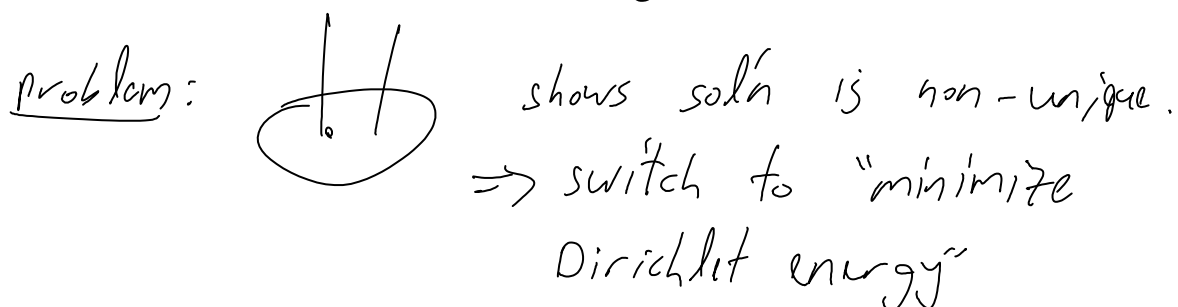 problem: shows sol'n is non-unique.
⇒ switch to "minimize
Dirichlet energy"